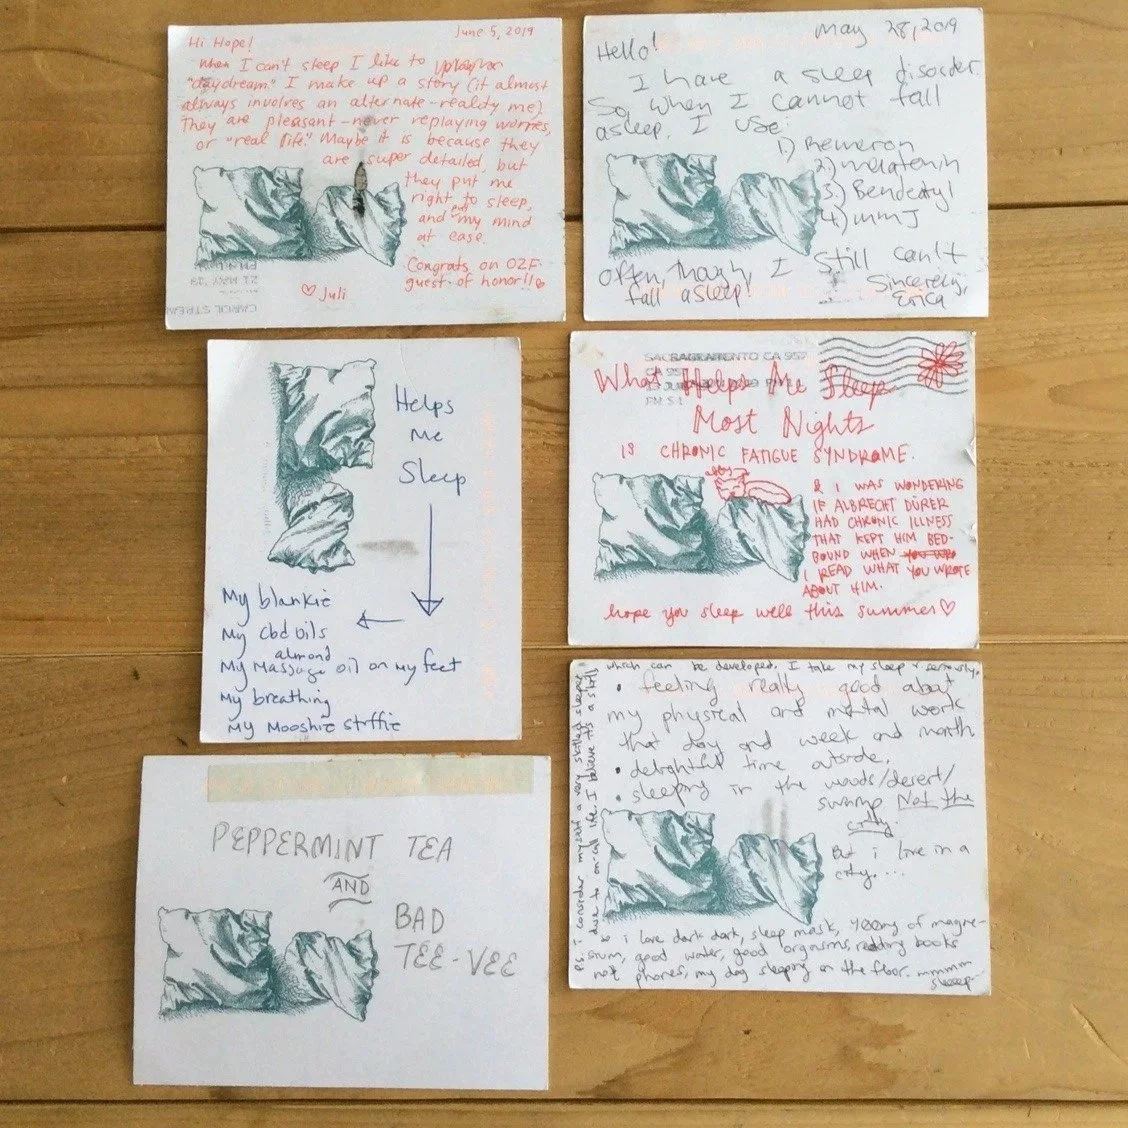 June 5, 2019
Hi Hope!
When I can't sleep I like to
"daydream." I make up a story (it almost
always involves an alternate-reality me)
They are pleasant - never replaying worries,
or "real life." Maybe it is because they
are super detailed, but
they put me
right to sleep,
and put my mind
at ease.
Congrats on OZF
guest of honor!!
♡ Juli
21 MAY '19
CAROL STREAM
May 28, 2019
Hello!
I have a sleep disorder.
So, when I cannot fall
asleep, I use:
1) Remeron
2) melatonin
3.) Bendaryl
4) mmJ
Often, though, I still can't
fall asleep
Sincerely,
Erica
Helps
Me
Sleep
My blankie
My cbd oils
almond
My Massage oil on my feet
My breathing
My Mooshie stuffie
SACRAMENTO CA 957
What Helps Me Sleep
Most Nights
IS CHRONIC FATIGUE SYNDROME.
& I WAS WONDERING
IF ALBRECHT DÜRER
HAD CHRONIC ILLNESS
THAT KEPT HIM BED-
BOUND WHEN
I READ WHAT YOU WROTE
ABOUT HIM.
hope you sleep well this summer ♡
• feeling really good about
my physical and mental work
that day and week and month
• delightful time outside.
• sleeping in the woods/desert/
swamp Not the
city.
But i live in a
city....
i love dark dark, sleep mask, 400mg of magne-
sium, good water, good orgasms, reading books
not phones, my dog sleeping on the floor. mmmm
sleep
P.S. i consider myself a very skilled sleeper
due to on-call life. I believe it's a skill
which can be developed. I take my sleep v seriously.
PEPPERMINT TEA
AND
BAD
TEE-VEE